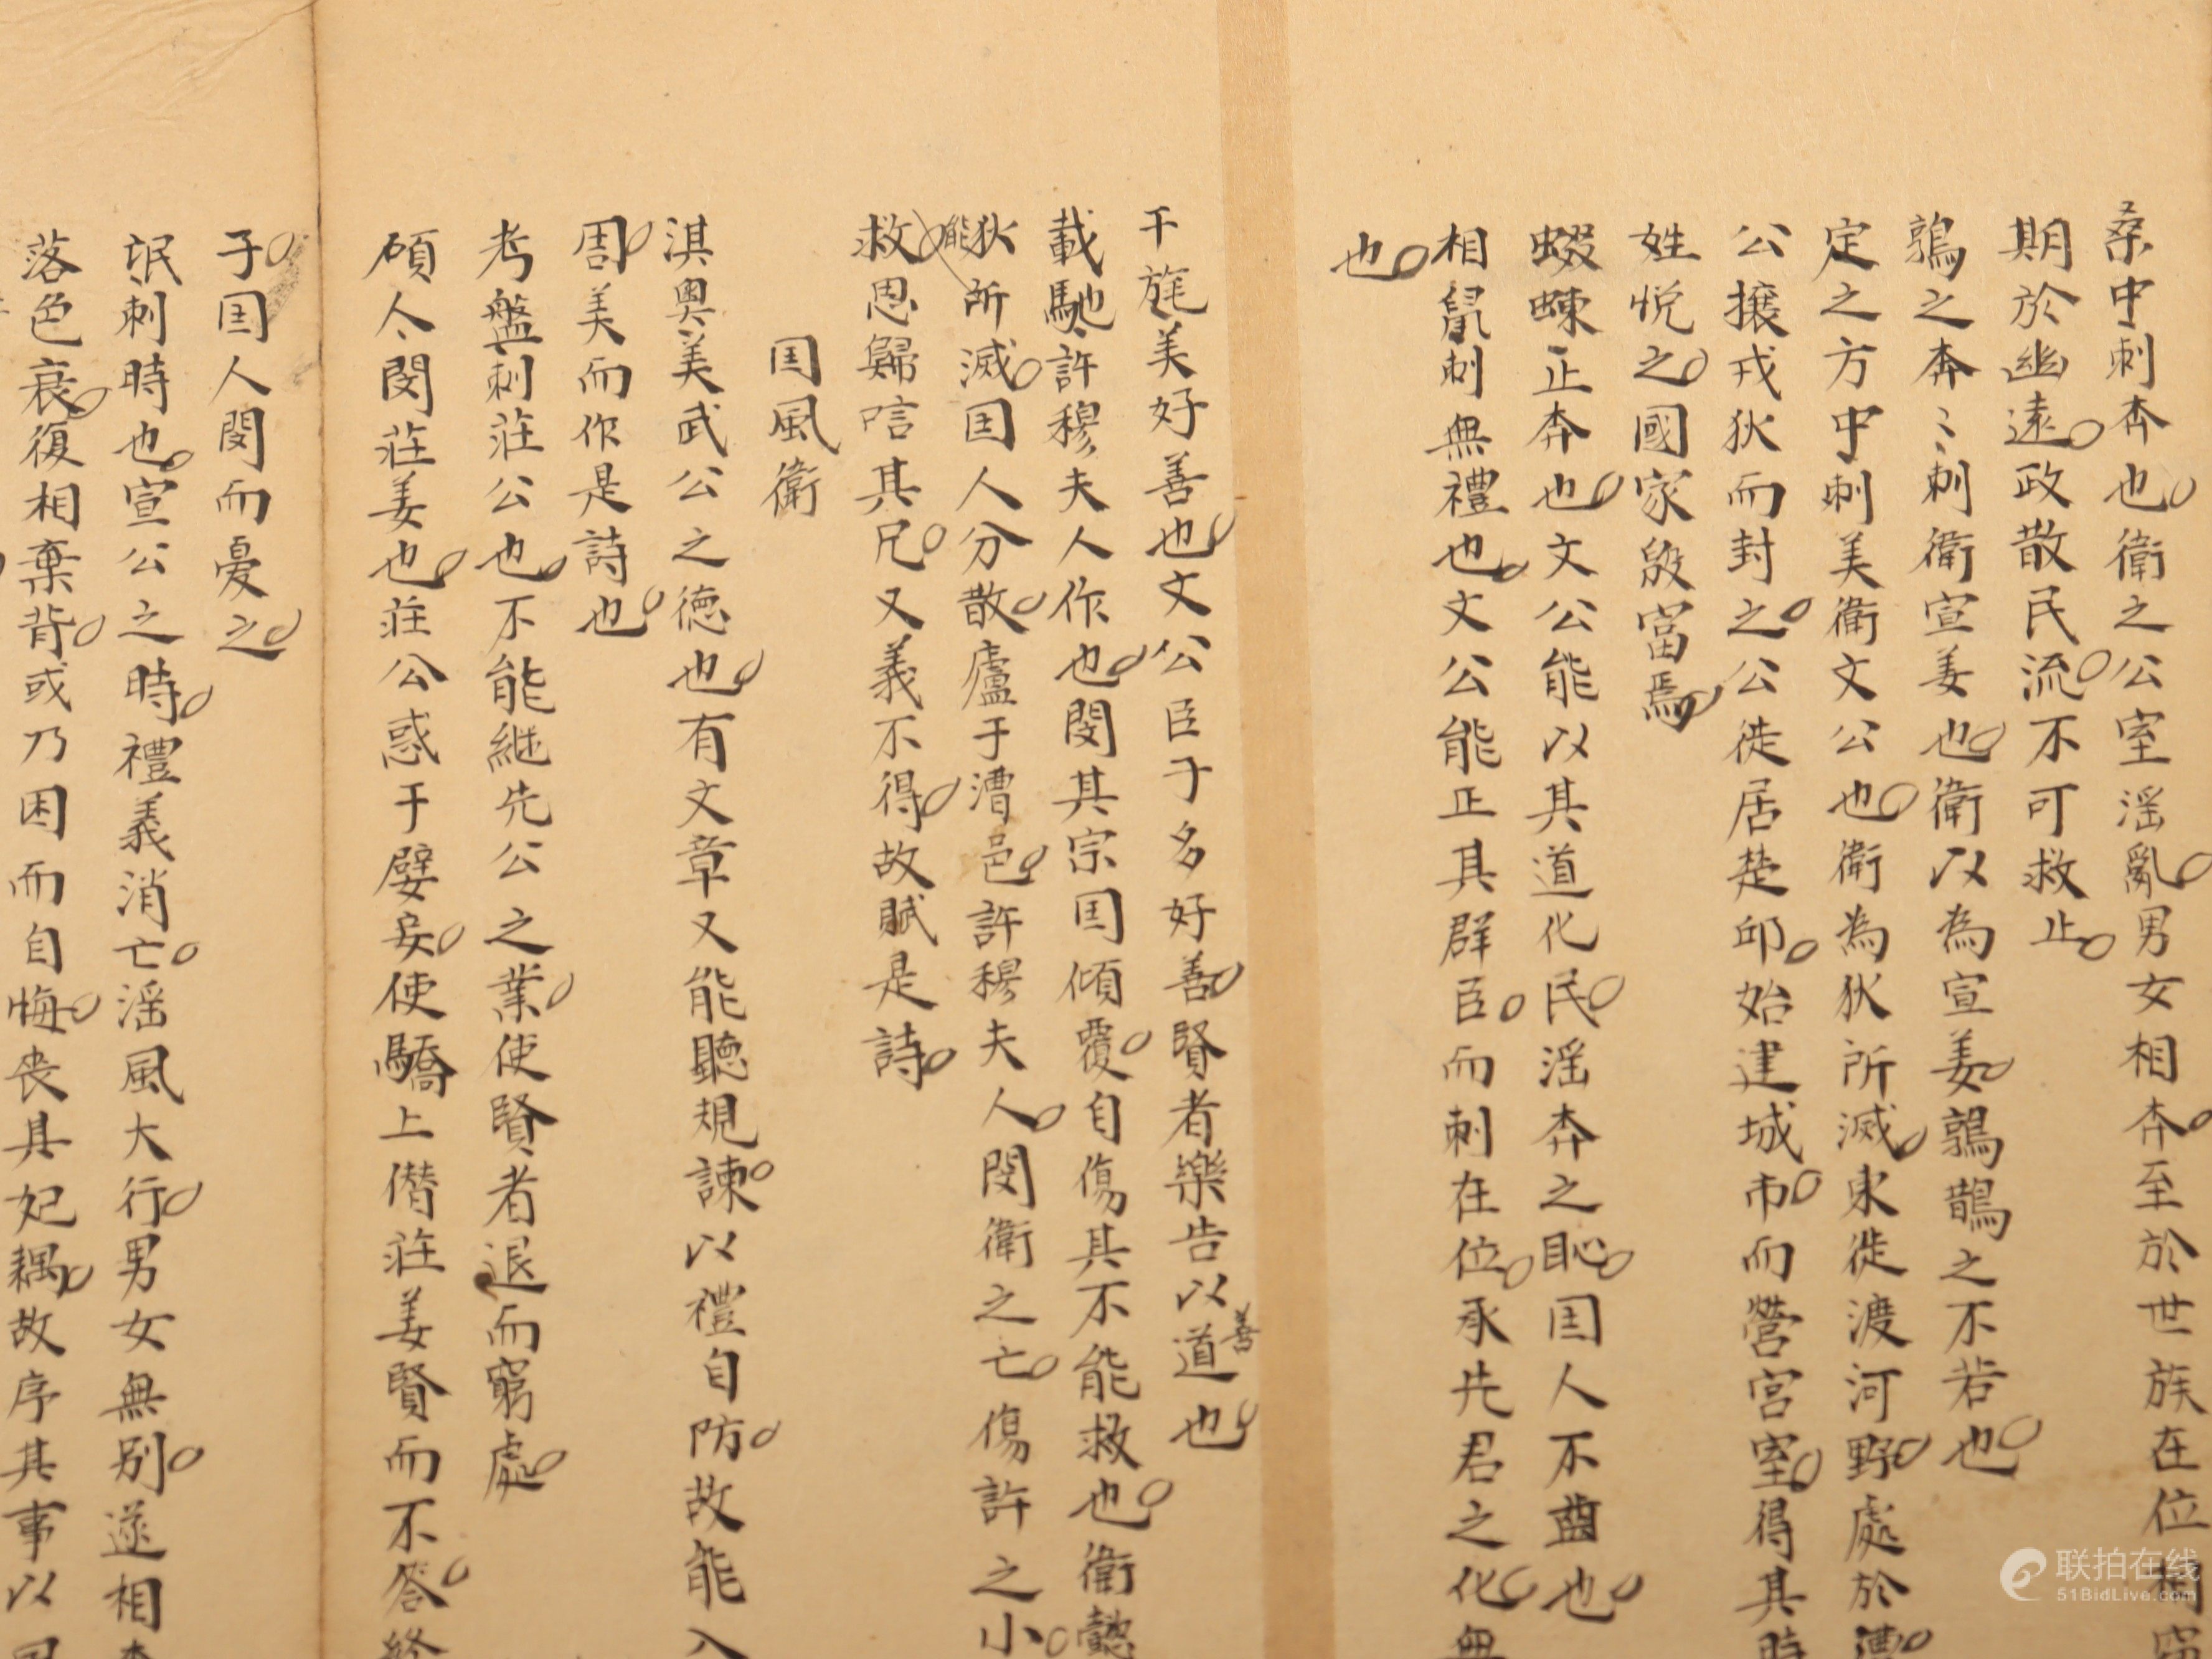 桑中刺奔也衛之公室滛亂男女相奔至於世族在位相竊
期於幽遠政散民流不可救止
鶉之奔〻刺衛宣姜也衛以為宣姜鶉鵲之不若也
定之方中刺美衛文公也衛為狄所滅東徙渡河野處於漕
公攘戎狄而封之公徙居楚邱始建城市而營宮室得其時
姓悅之國家殷富焉
蝃蝀止奔也文公能以其道化民滛奔之恥囯人不齒也
相鼠刺無禮也文公能正其群臣而刺在位承先君之化無
也
干旄美好善也文公臣子多好善賢者樂告以善道也
載馳許穆夫人作也閔其宗囯傾覆自傷其不能救也衛懿
狄所滅囯人分散廬于漕邑許穆夫人閔衛之亡傷許之小
能救思歸唁其兄又義不得故賦是詩
囯風衛
淇奧美武公之德也有文章又能聽規諫以禮自防故能入
周美而作是詩也
考盤刺莊公也不能継先公之業使賢者退而窮處
碩人閔莊姜也莊公惑于嬖妾使驕上僭莊姜賢而不答終
子囯人閔而憂之
氓刺時也宣公之時禮義消亡滛風大行男女無別遂相奔
落色衰復相棄背或乃困而自悔喪其妃耦故序其事以風
联拍在线
51BidLive.com